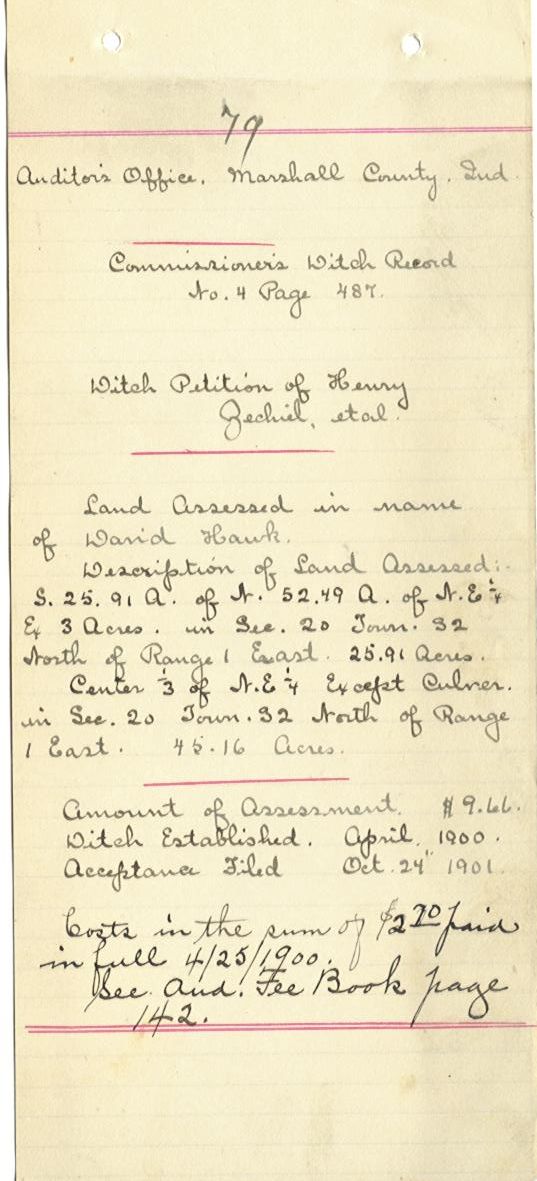 79
Auditor's Office. Marshall County. Ind.
Commissioner's Ditch Record
No. 4 Page 487.
Ditch Petition of Henry
Zechiel, et al.
Land Assessed in name
of David Hawk.
Description of Land Assessed:-
S. 25.91 A. of N. 52.49 A. of N.E ¼
Ex 3 Acres. in Sec. 20 Town. 32
North of Range 1 East. 25.91 Acres.
Center ⅓ of N.E ¼ Except Culver.
in Sec. 20 Town. 32 North of Range
1 East. 45.16 Acres.
Amount of Assessment. $9.66.
Ditch Established. April, 1900.
Acceptance Filed Oct. 24" 1901.
Costs in the sum of $2 70 paid
in full 4/25/1900.
See Aud. Fee Book page
142.